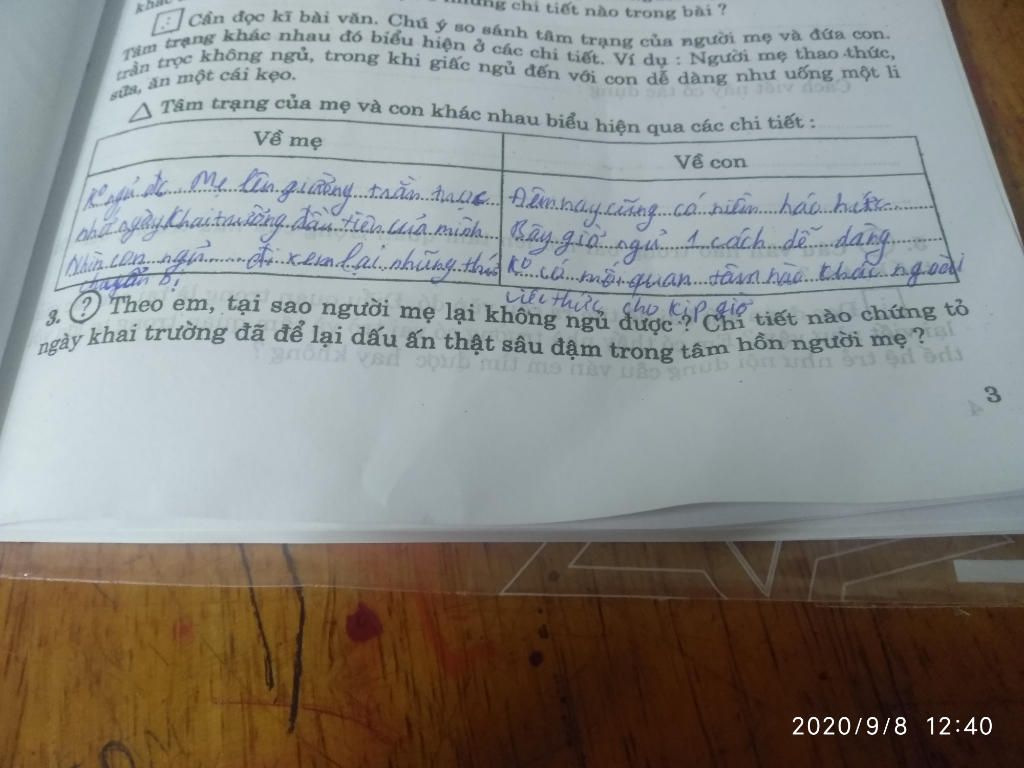 những chi tiết nào trong bài ?
Cần đọc kĩ bài văn. Chú ý so sánh tâm trạng của người mẹ và đứa con.
Tâm trạng khác nhau đó biểu hiện ở các chi tiết. Ví dụ : Người mẹ thao thức,
trằn trọc không ngủ, trong khi giấc ngủ đến với con dễ dàng như uống một li
sữa, ăn một cái kẹo.
Tâm trạng của mẹ và con khác nhau biểu hiện qua các chi tiết :
Về mẹ
Về con
Ko ngủ đc Mẹ lên giường trằn trọc
nhớ ngày khai trường đầu tiên của mình
Nhìn con ngủ đi xem lại những thứ
chuẩn bị
Đêm nay cũng có niềm háo hức
Bây giờ ngủ 1 cách dễ dàng
Ko có mối quan tâm nào khác ngoài
việc thức cho kịp giờ
3. ? Theo em, tại sao người mẹ lại không ngủ được ? Chi tiết nào chứng tỏ
ngày khai trường đã để lại dấu ấn thật sâu đậm trong tâm hồn người mẹ ?
3
2020/9/8 12:40